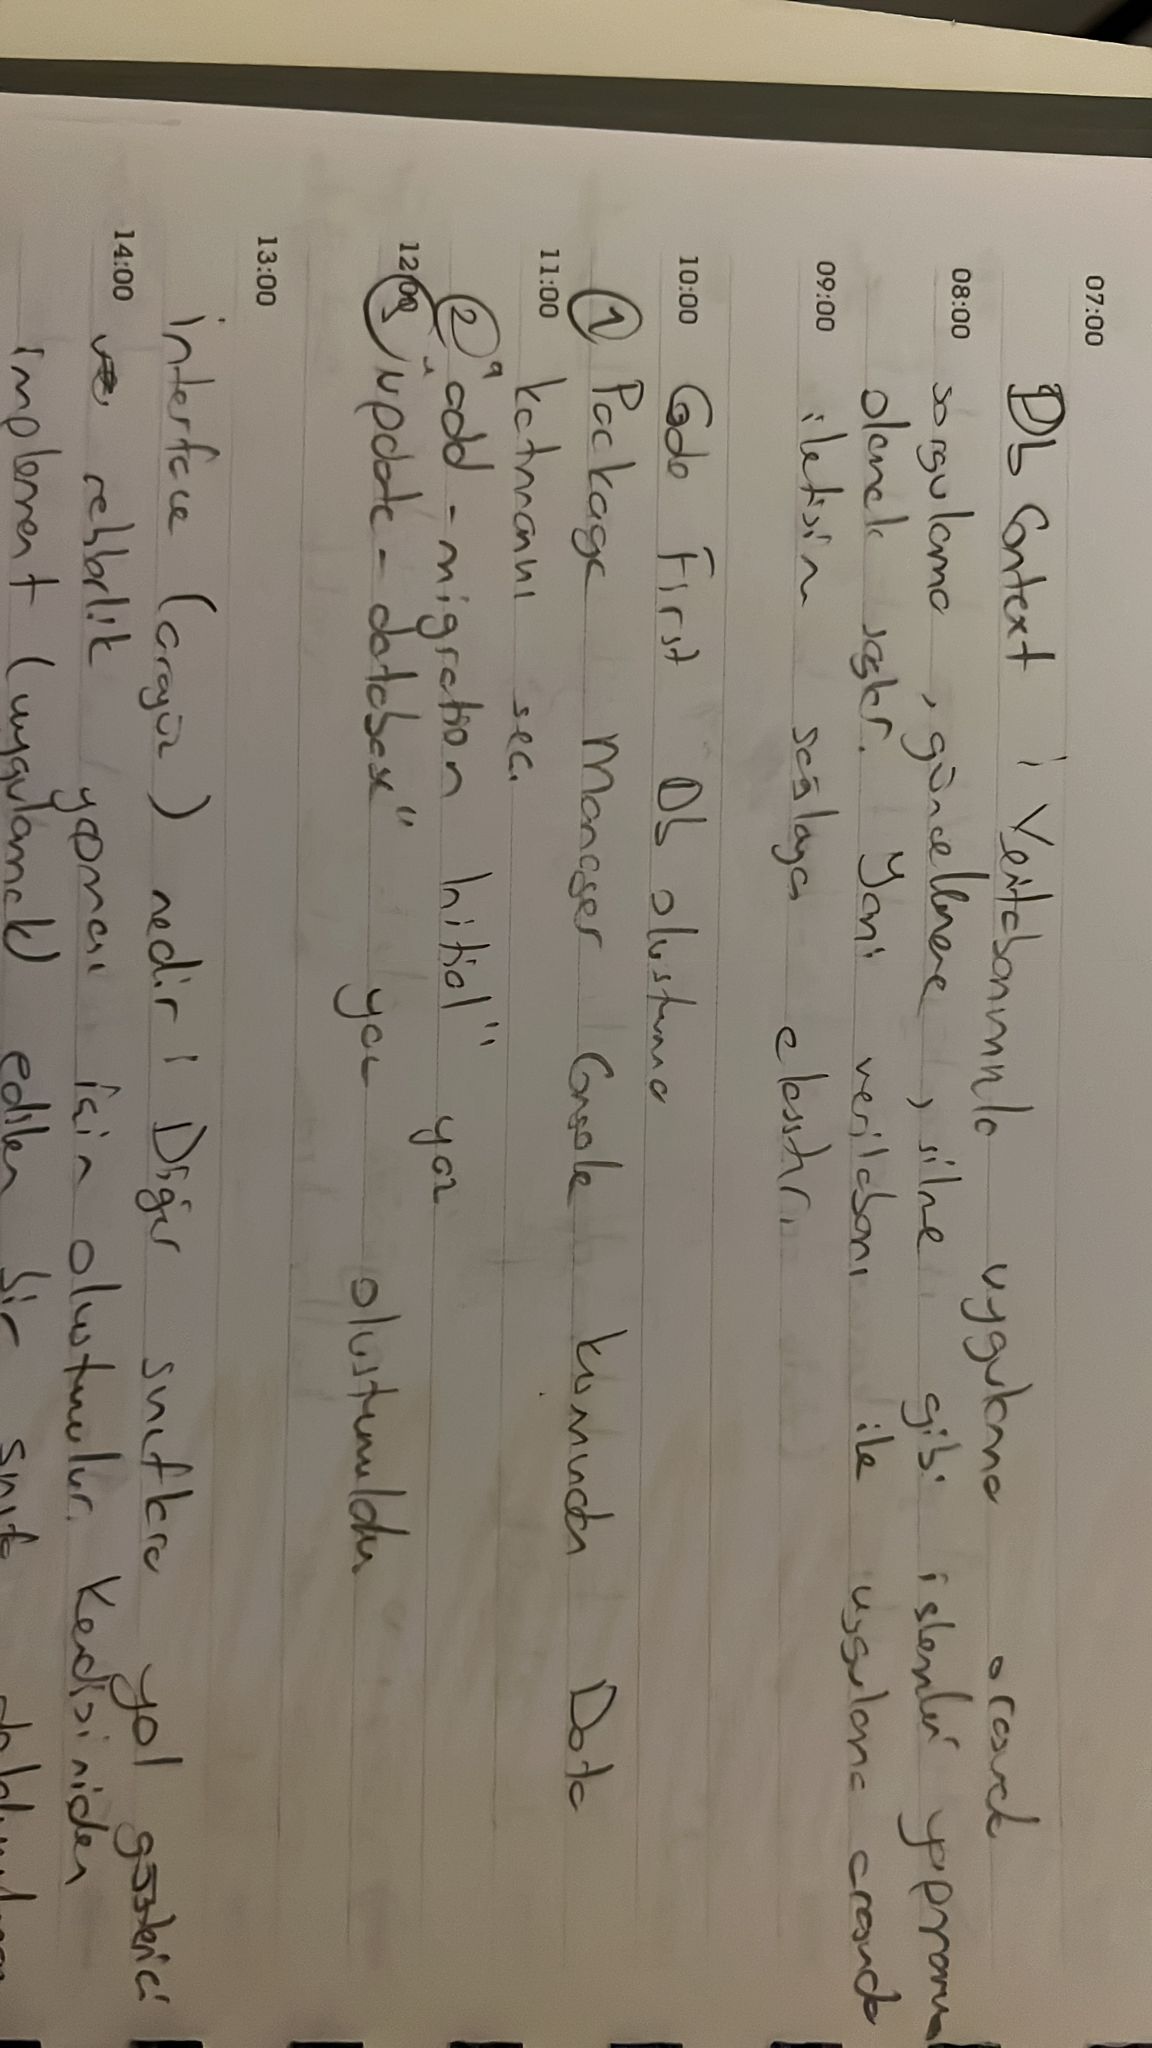 07:00
Db Context : Veritabanımla uygulama arasında
08:00 sorgulama , güncelleme , silme gibi işlemleri yapmama
olanak sağlar. Yani veritabanı ile uygulama arasında
09:00 iletişim sağlayan
10:00 Code First Db oluşturma
① Package Manager Console kısmından Data
11:00 katmanını sec.
② "add - migration Initial" yaz
12:00 ③ "update - database" yaz oluşturuldu
13:00
interface (arayüz) nedir : Diğer sınıflara yol gösterici
14:00 ve rehberlik yapması için oluşturulur. Kendisiniden
implement (uygulamak) edilen bir sınıf